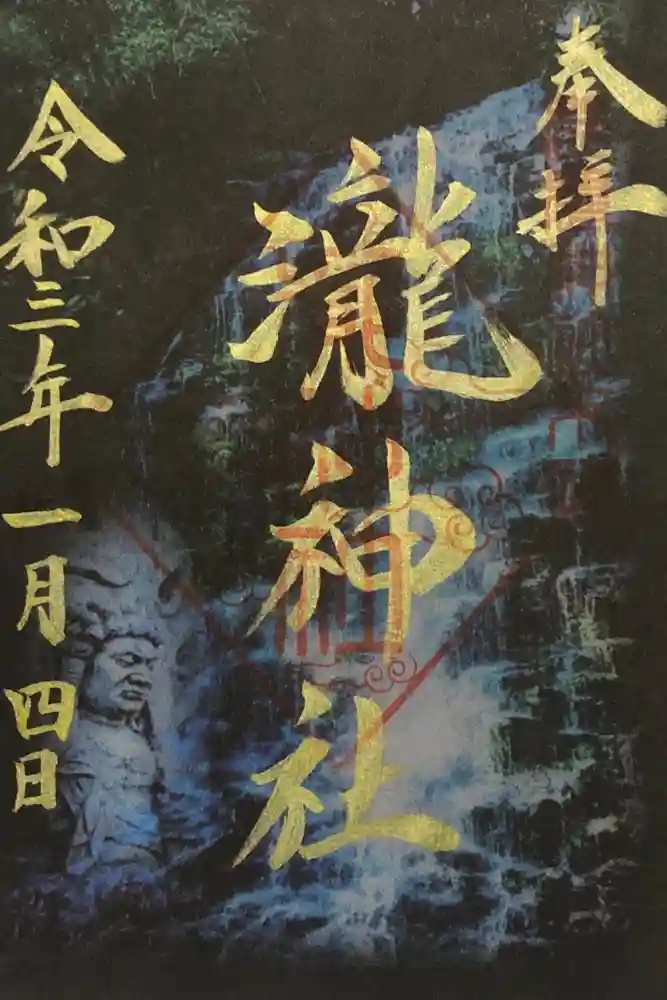 奉拝
瀧神社
令和三年一月四日